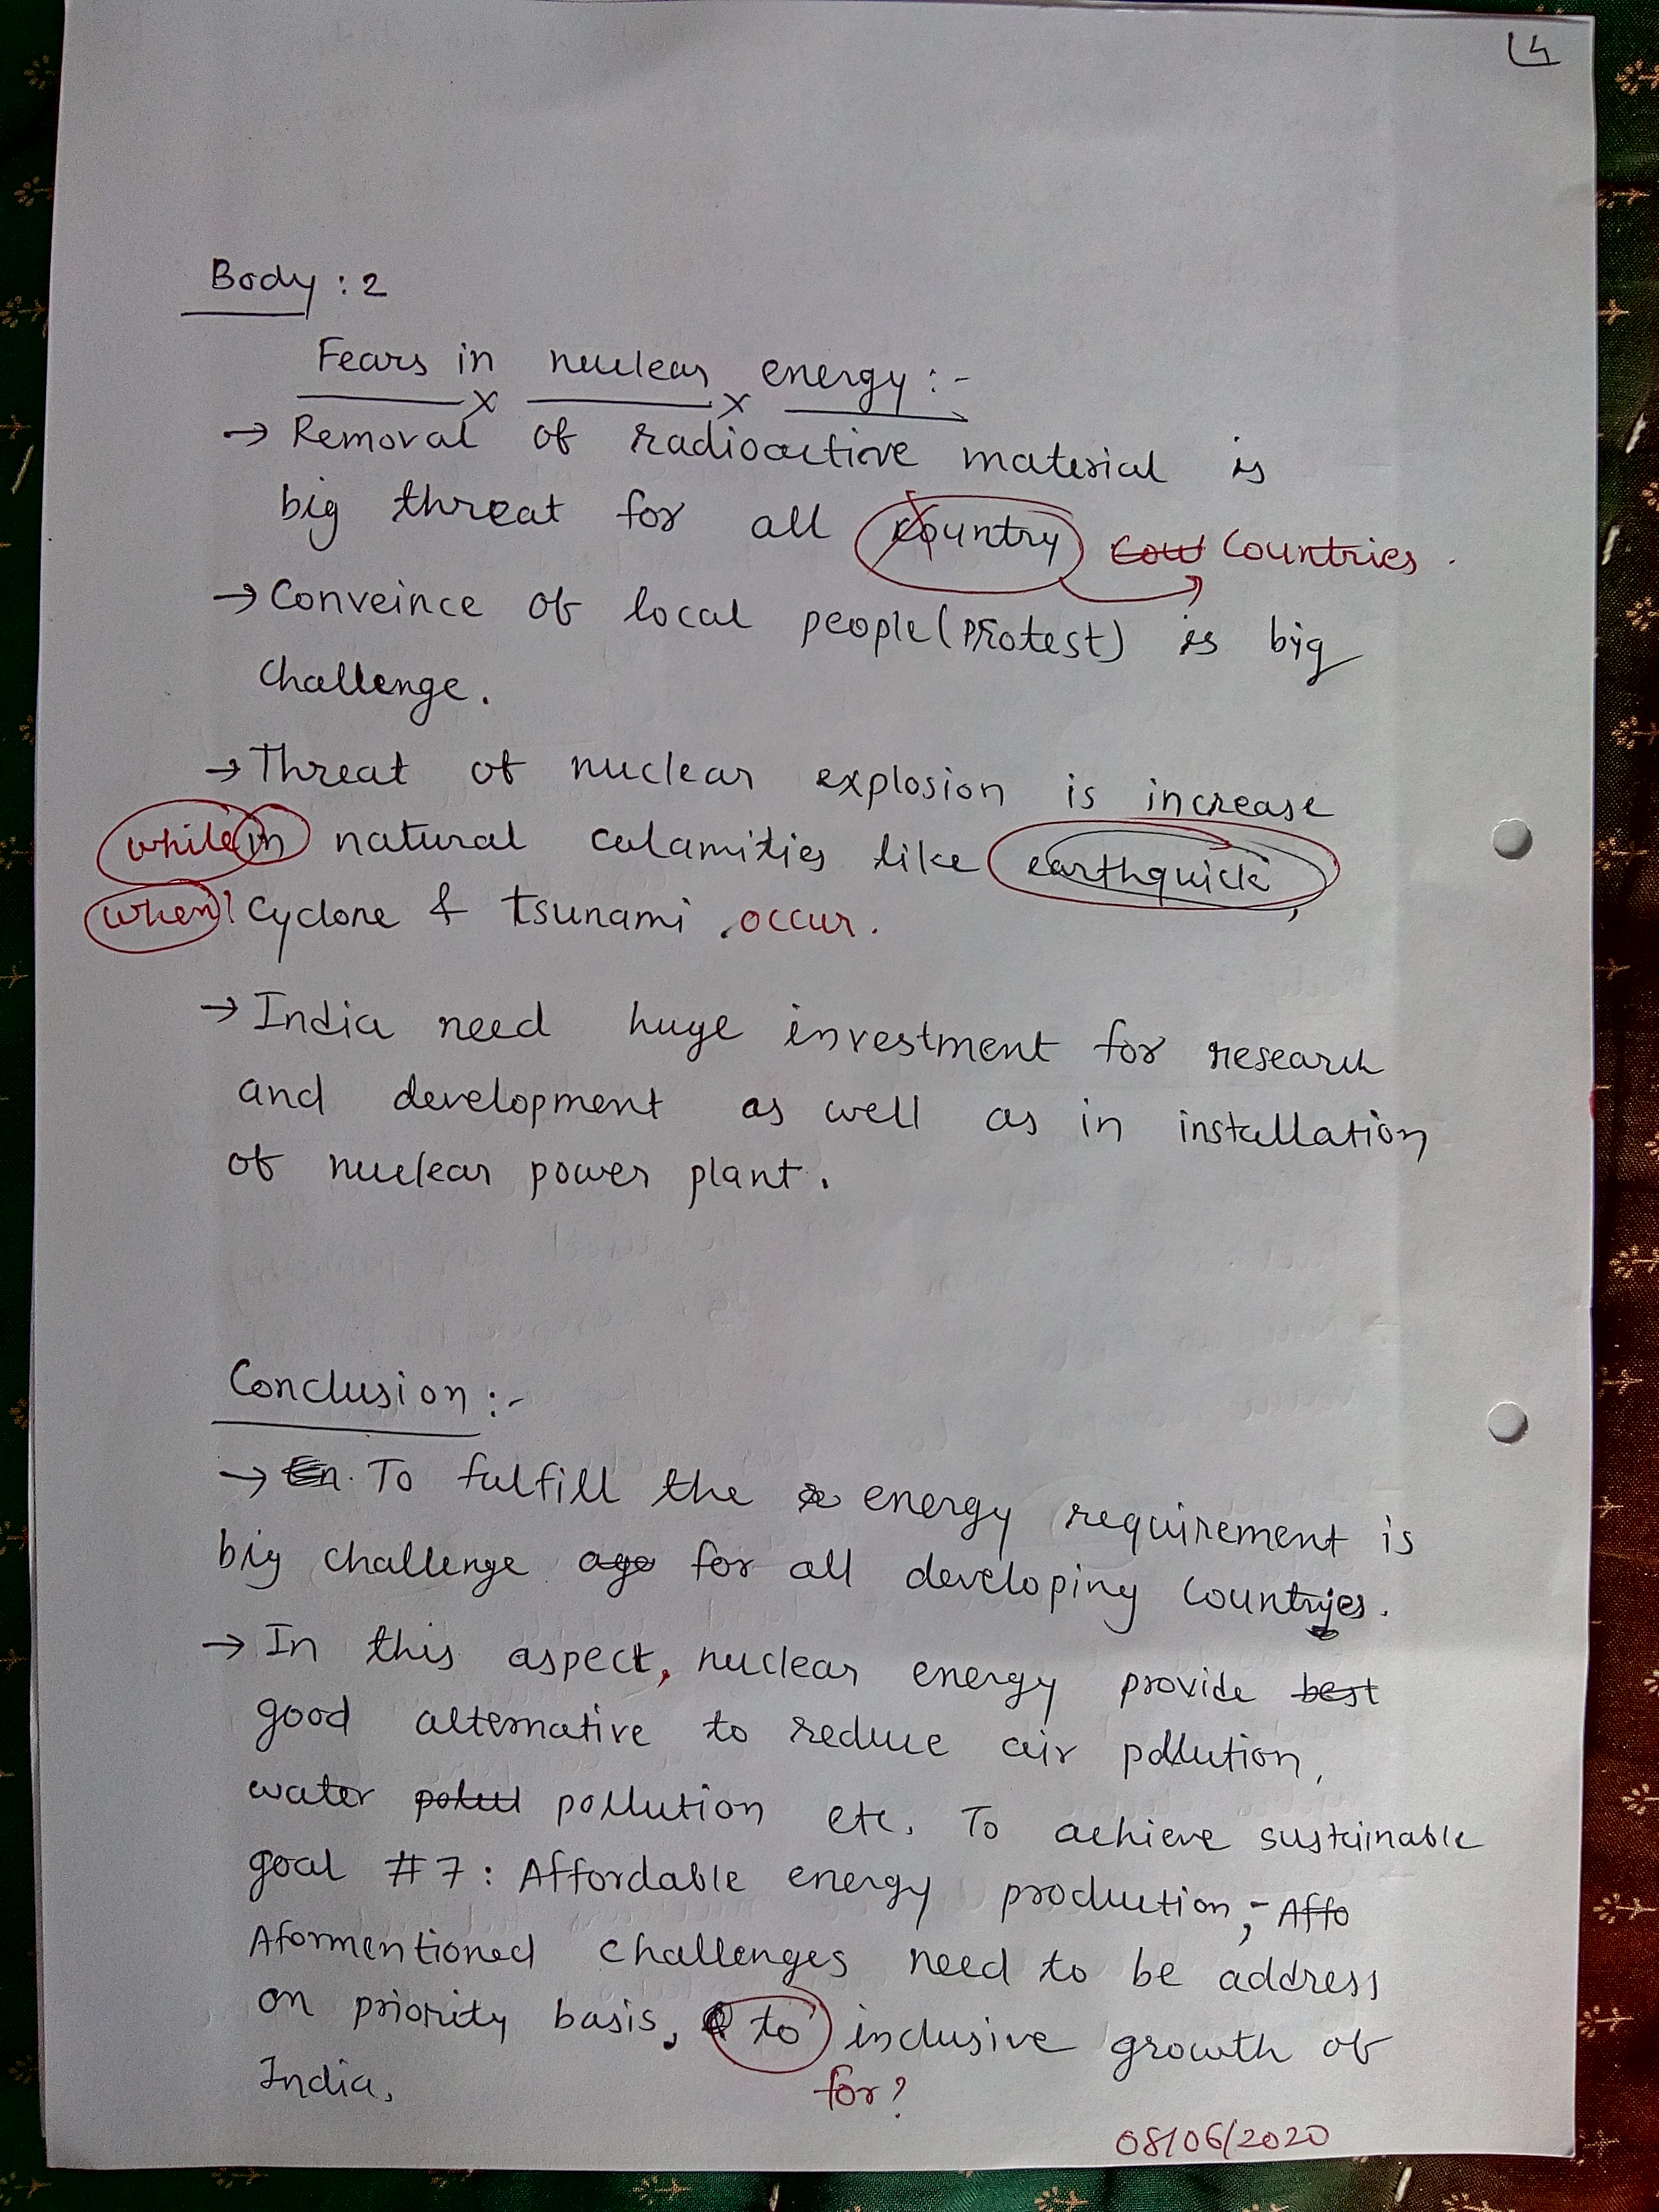 4
Body : 2
Fears in nuclear energy :-
→ Removal of radioactive material is
big threat for all country Cou Countries.
→ Conveince of local people (Protest) is big
challenge.
→ Threat of nuclear explosion is increase
while in natural calamities like earthquick,
when? Cyclone & tsunami occur.
→ India need huge investment for research
and development as well as in installation
of nuclear power plant.
Conclusion :-
→ En. To fulfill the energy requirement is
big challenge ago for all developing countries.
→ In this aspect, nuclear energy provide best
good alternative to reduce air pollution,
water pollution etc. To achieve sustainable
goal #7 : Affordable energy production, - Affo
Aformentioned challenges need to be address
on priority basis, to inclusive growth of
India.
for?
08/06/2020